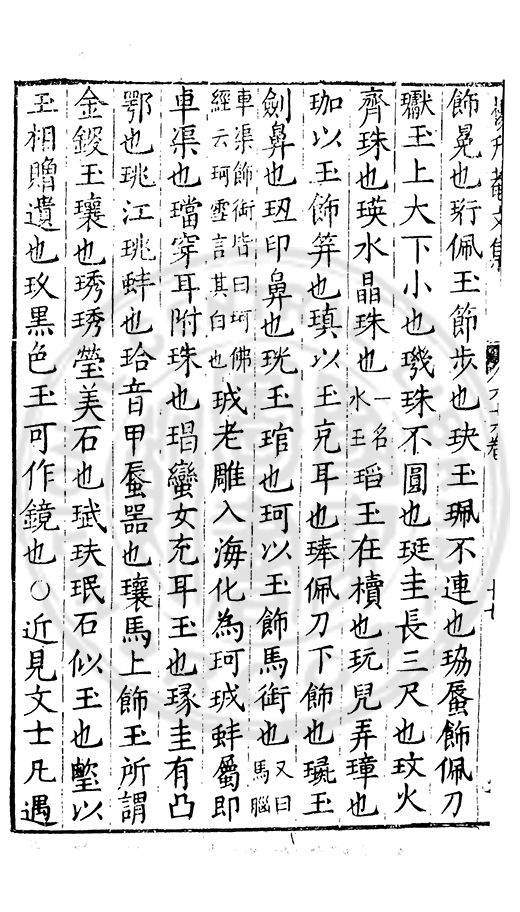 飾冕也珩佩玉節步也玦玉珮不連也珕蜃飾佩刀
瓛玉上大下小也璣珠不圓也珽圭長三尺也玟火
齊珠也瑛水晶珠也一名水玉瑫玉在櫝也玩兒弄璋也
珈以玉飾筓也瑱以玉充耳也琫佩刀下飾也璏玉
劍鼻也𤣮印鼻也珖玉琯也珂以玉飾馬銜也又曰馬腦
車渠飾銜皆曰珂佛經云珂雪言其白也珬老雕入海化為珂珬蚌屬即
車渠也璫穿耳附珠也琩蠻女充耳玉也瑑圭有凸
鄂也珧江珧蚌也珨音甲蜃噐也瓖馬上飾玉所謂
金鍐玉瓖也琇琇瑩美石也珷玞珉石似玉也㙠以
玉相贈遺也玖黑色玉可作鏡也○近見文士凡遇